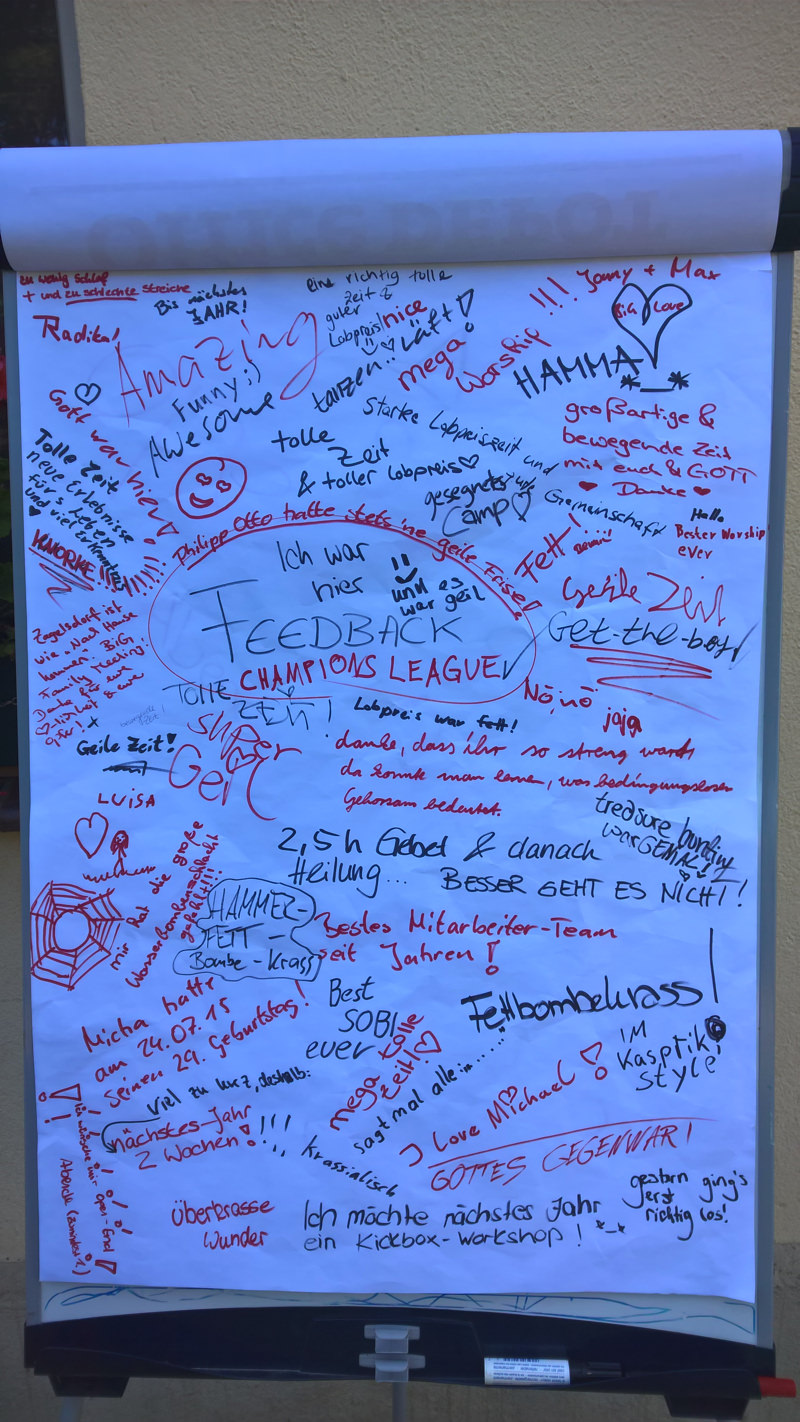 zu wenig Schlaf
+ und zu schlechte Streiche
Bis nächstes
JAHR!
eine richtig tolle
Zeit &
guter
Lobpreis!
nice
Jonny + Max
BiG Love
Radikal
Amazing
Funny ;)
Awesome
tanzen...
Läft!
mega
Worship !!!
HAMMA
*_*
Gott war hier!
Tolle Zeit
neue Erlebnisse
für's Leben
und viel
KNORKE!!!
tolle
Zeit
& toller Lobpreis
Starke Lobpreiszeit und
Gemeinschaft
gesegnetes
Camp
großartige &
bewegende Zeit
mit euch & GOTT
Danke
Hallo
Bester Worship
ever
Philipp Otto hatte stets 'ne geile Frise!
Ich war
hier
und es
war geil
FEEDBACK
CHAMPIONS LEAGUE
Fett!
Geile Zeit
Get-the-boy
Zagelsdorf ist
wie "Nach Hause
kommen" BiG
Family feeling!
Danke für
TOLLE
ZEIT!
Nö, nö
jaja
Lobpreis war fett!
super
Geil
Geile Zeit!
danke, dass ihr so streng wart
da konnte man lernen, was bedingungsloser
Gehorsam bedeutet.
LUISA
treasure hunting
war GENIAL!
2,5 h Gebet & danach
Heilung... BESSER GEHT ES NICHT!
mir hat die große
Wasserbombenschlacht
gefehlt!!!
HAMMER-
FETT-
Bombe-Krass
Bestes Mitarbeiter-Team
seit Jahren!
Best
SOBI
ever
Fettbombekrass!
Micha hatte
am 24.07.15
Seinen 29. Geburtstag!
mega tolle
Zeit!
sagt mal alle: ......
IM
Kasprik
style
I Love Michael!
Viel zu kurz, deshalb:
nächstes-Jahr
2 Wochen! !!!
krassialisch
GOTTES GEGENWART
Ich wünsche mir open-End
Abende (zumindest 1)
überkrasse
Wunder
Ich möchte nächstes Jahr
ein Kickbox-Workshop! *-*
gestern ging's
erst
richtig los!